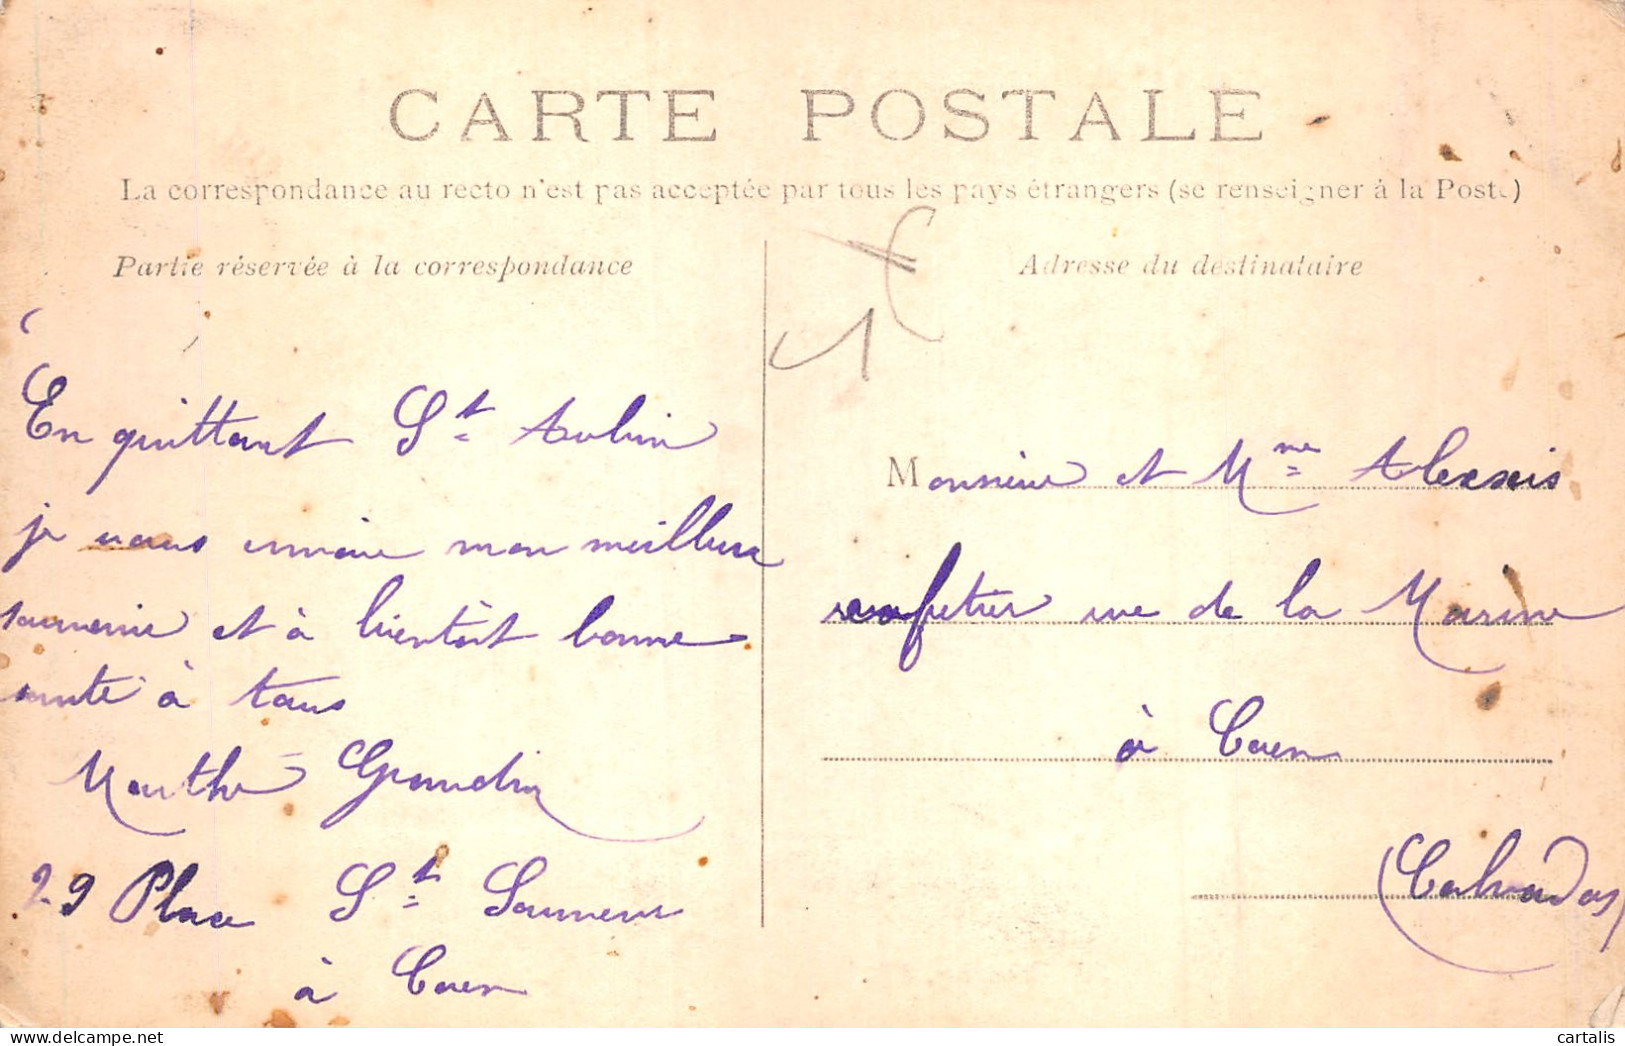 CARTE POSTALE
La correspondance au recto n'est pas acceptée par tous les pays étrangers (se renseigner à la Poste)
Partie réservée à la correspondance
Adresse du destinataire
1 €
En quittant St Aubin
je vous envoie mon meilleur
souvenir et à bientôt bonne
santé à tous
Marthe Grandin
29 Place St Sauveur
à Caen
Monsieur et Mme Alexis
cafetier rue de la Marine
à Caen
(Calvados)
cartalis